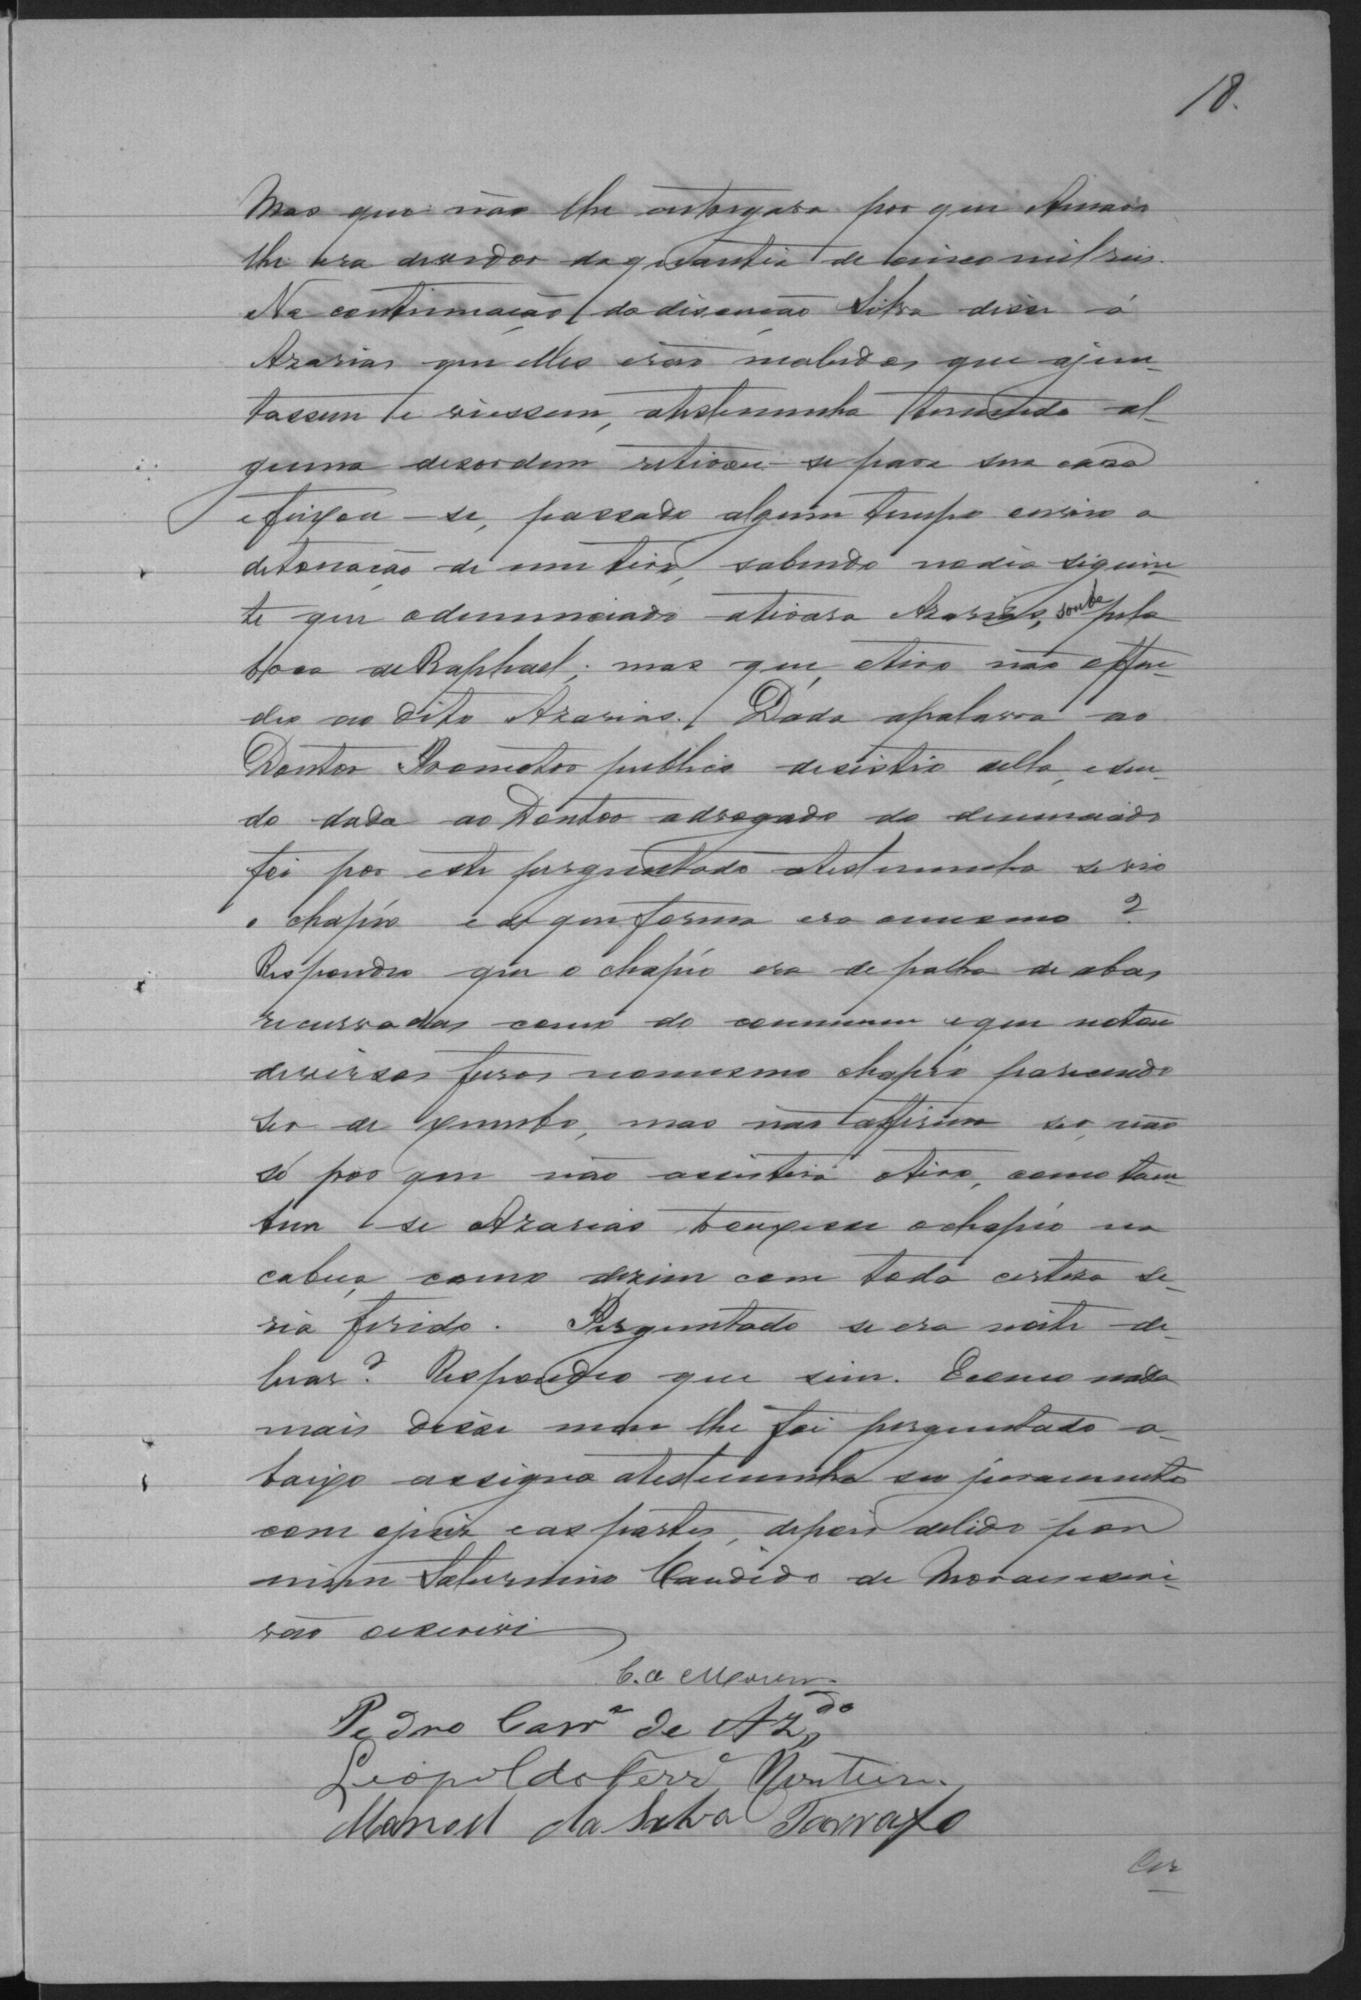 18.
Mas que não lhe entregara por que
lhe era devedor da quantia de cinco mil reis.
Na continuação da discussão Silva disse á
Azarias que elles erão malvados que ajun-
tassem e viessem, atestemunha temendo al-
guma desordem retirou-se para sua casa
efeixou-se, passado algum tempo ouvio a
detonação de um tiro, sabendo nodia seguin-
te que odenunciado atirara Azarias, soube pela
boca de Raphael; mas que, otiro não offen-
deo ao dito Azarias. Dada apalavra ao
Doutor Promotor publico desistio della, esen-
do dada ao Doutor advogado do denunciado
foi por este perguntado atestemunha se vio
o chapéo e de que forma era omesmo?
Respondeo que o chapéo era de palha de abas
recurvadas como do commum eque notou
diversos furos nomesmo chapéo parecendo
ser de chumbo, mas não affirma ser, não
só por que não assistira otiro, como tam-
bem se Azarias trouxesse ochapéo na
cabeça, como dizem com toda certeza se-
ria ferido. Perguntado se era noite de
luar? Respondeo que sim. Ecomo nada
mais disse nem lhe foi perguntado a-
baixo assigna atestemunha seu juramento
com ojuiz eas partes, depois delido por
mim Saturnino Candido de Moraes escri-
vão oescrevi
Pedro Carrª de Azdo
Leopoldo Ferrª Monteiro.
Manoel da Silva Tarrafo